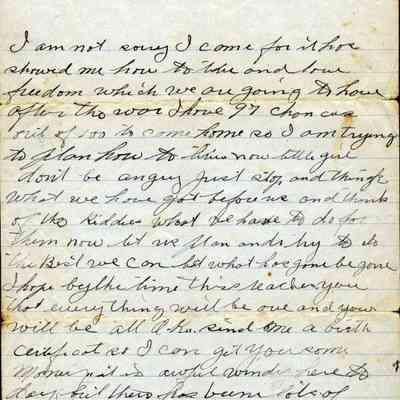 I am not sorry I come for it has
showed me how to live and love
freedom which we are going to have
after the war I have 97 chances
out of 100 to come home so I am trying
to plan how to live now little girl
don't be angry just stop and think
what we have got before us and think
of the kiddies what we have to do for
them now let us plan and try to do
the best we can let what has gone be gone
I hope by the time this reaches you
that every thing will be over and you
will be all O.K. send me a birth
certificat so I can get you some
money it is awful windy here to
day but there has been lots of